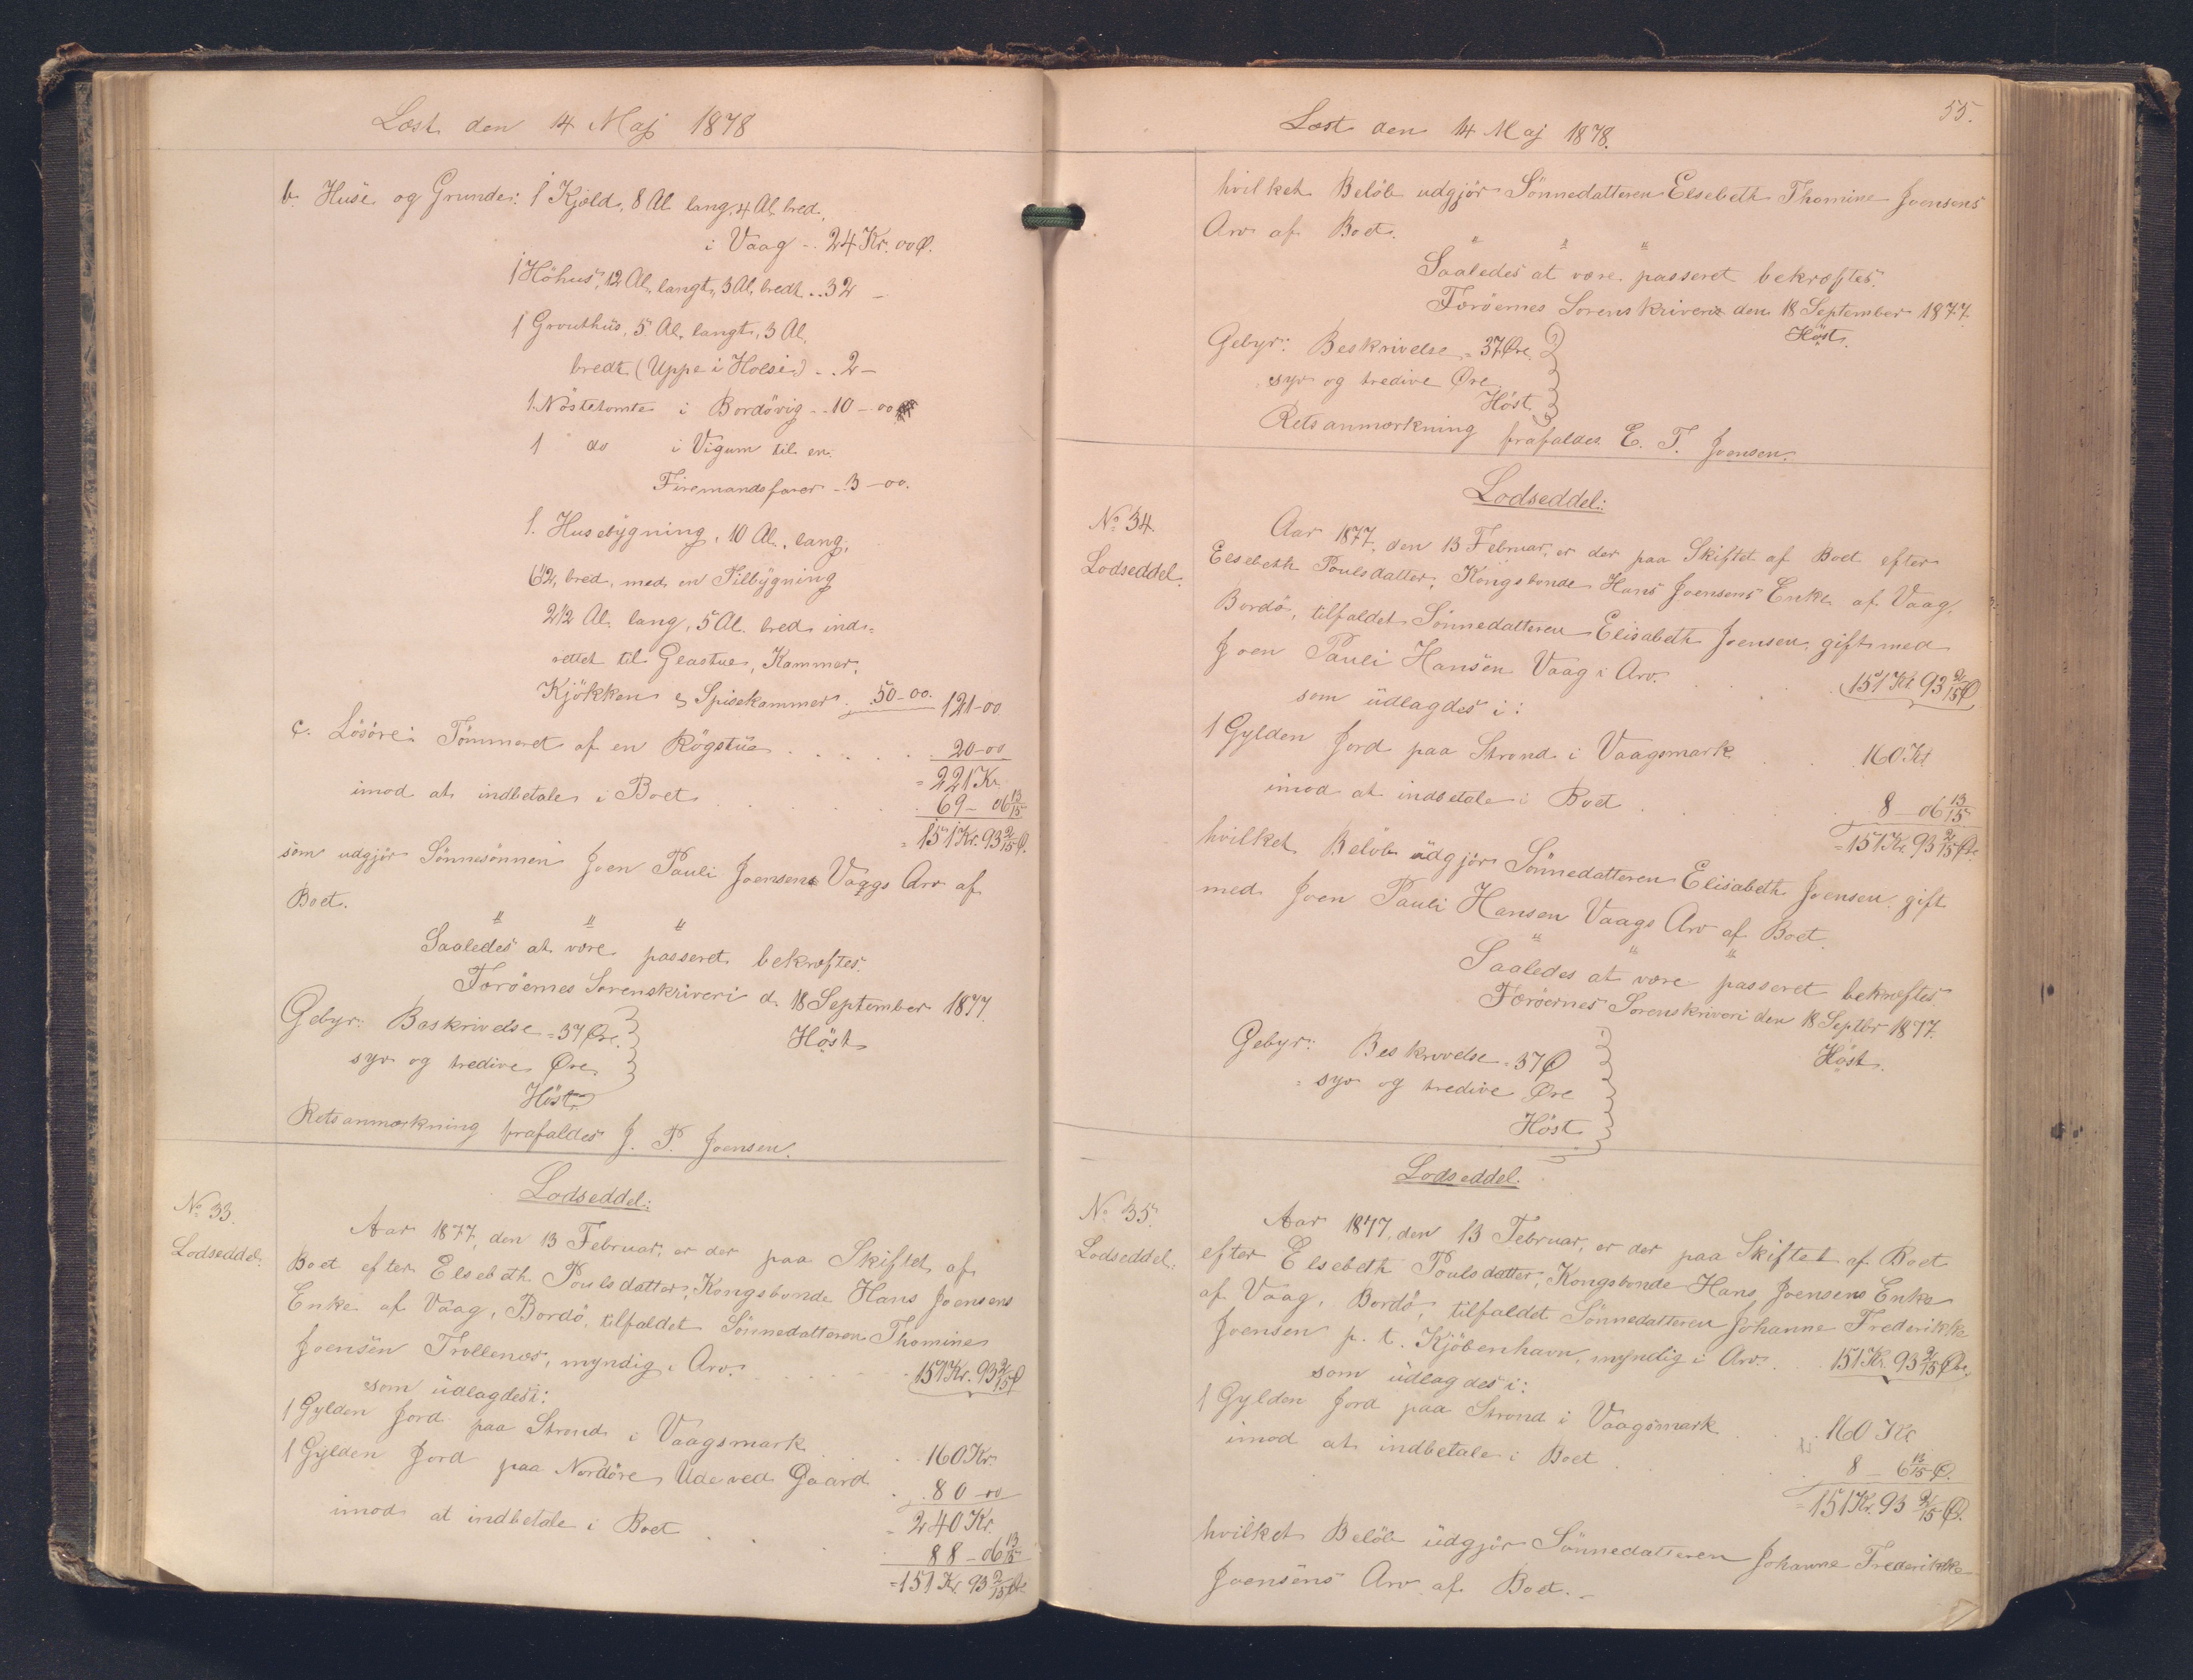 Læst den 14 Maj 1878
b. Huse og Grunde: 1 Kjeld, 8 Al. lang, 4 Al. bred,
i Vaag .. 24 Kr. 00 Ø.
1 Höhus, 12 Al. langt, 3 Al. bredt .. 32 —
1 Grouthus, 5 Al. langt, 3 Al.
bredt (Uppe i Hoesi) .. 2 —
1. Nöstetomte i Bordövig .. 10 — 00
1 do i Vigum til en
Firemandsfarer .. 3 — 00.
1. Husebygning, 10 Al. lang,
6 1/2 bred, med en Tilbygning
2 1/2 Al. lang, 5 Al. bred ind=
rettet til Glastue, Kammer,
Kjökken & Spisekammer . 50 - 00. 121 - 00
c. Lösöre: Tömmeret af en Rögstue . . . . 20 - 00
= 221 Kr.
imod at indbetale i Boet . . . . 69 — 06 13/15
= 151 Kr. 93 2/15 Ø.
som udgjör Sönnesönnen Joen Pauli Joensens Vaags Arv af
Boet.
" " "
Saaledes at være passeret bekræftes.
Færöernes Sorenskriveri d. 18 September 1877.
Höst
Gebyr: Beskrivelse = 37 Øre.
syv og tredive Øre
Höst
Retsanmærkning frafaldes J. P. Joensen.
Lodseddel:
No 33.
Lodseddel.
Aar 1877, den 13 Februar, er der paa Skiftet af
Boet efter Elsebeth Poulsdatter, Kongsbonde Hans Joensens
Enke af Vaag, Bordö, tilfaldet Sönnedatteren Thomine
Joensen Trollenæs, myndig i Arv. . . . . 151 Kr. 93 2/15 Ø
som udlagdes i:
1 Gylden Jord paa Strond i Vaagsmark . . 160 Kr.
1 Gylden Jord paa Nordöre, Ude ved Gaard . 80 - 00
= 240 Kr.
imod at indbetale i Boet . . . 88 - 06 13/15
= 151 Kr 93 2/15 Øre
55.
Læst den 14 Maj 1878.
hvilket Belöb udgjör Sönnedatteren Elsebeth Thomine Joensens
Arv af Boet.
" " "
Saaledes at være passeret bekræftes.
Færöernes Sorenskriveri den 18 September 1877.
Höst.
Gebyr: Beskrivelse = 37 Øre.
syv og tredive Øre
Höst
Retsanmærkning frafaldes. E. T. Joensen.
Lodseddel:
No 34.
Lodseddel.
Aar 1877, den 13 Februar, er der paa Skiftet af Boet efter
Elsebeth Poulsdatter, Kongsbonde Hans Joensens Enke af Vaag,
Bordö, tilfaldet Sönnedatteren Elisabeth Joensen, gift med
Joen Pauli Hansen Vaag i Arv. . . . 151 Kr. 93 2/15 Ø
som udlagdes i:
1 Gylden Jord paa Strond i Vaagsmark . . 160 Kr
imod at indbetale i Boet . . . 8 — 06 13/15
= 151 Kr. 93 2/15 Øre
hvilket Belöb udgjör Sönnedatteren Elisabeth Joensen, gift
med Joen Pauli Hansen Vaags Arv af Boet.
" " "
Saaledes at være passeret bekræftes
Færöernes Sorenskriveri den 18 Septbr 1877.
Höst.
Gebyr: Beskrivelse = 37 Ø
= syv og tredive Øre
Höst
Lodseddel.
No 35.
Lodseddel.
Aar 1877, den 13 Februar, er der paa Skiftet af Boet
efter Elsebeth Poulsdatter, Kongsbonde Hans Joensens Enke
af Vaag, Bordö, tilfaldet Sönnedatteren Johanne Frederikke
Joensen p. t. Kjöbenhavn, myndig i Arv. . . 151 Kr. 93 2/15 Øre
som udlagdes i:
1 Gylden Jord paa Strond i Vaagsmark . . 160 Kr
imod at indbetale i Boet . . . 8 — 6 13/15 Ø.
= 151 Kr. 93 2/15 Ø.
hvilket Belöb udgjör Sönnedatteren Johanne Frederikke
Joensens Arv af Boet. –